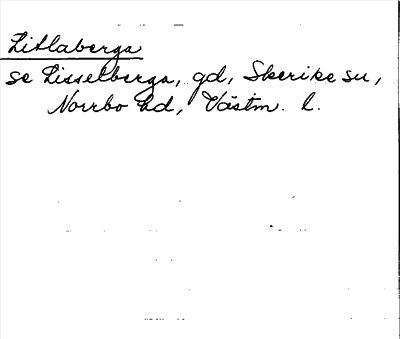 Litlaberga
se Lisselberga, gd, Skerike su,
Norrbo hd, Västm. l.